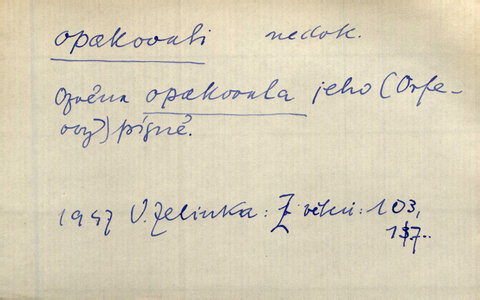 opakovati nedok.
Ozvěna opakovala jeho (Orfe-
ovy) písně.
1947 V. Zelinka: Z : 103,